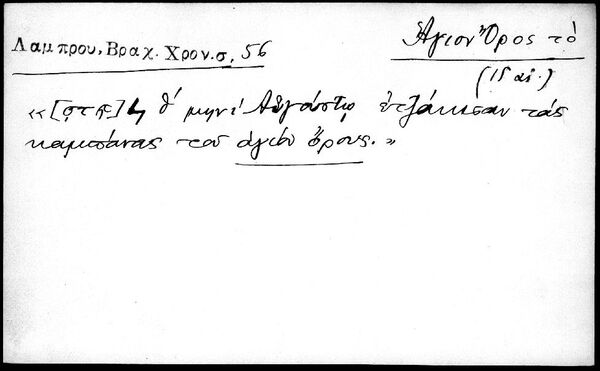 Λαμπρου, Βραχ. Χρον. σ, 56
Ἅγιον Ὄρος τὸ
(15 αἰ.)
«[ϛτϙ]ϟ θ´ μηνὶ Αὐγούστῳ ἐτζάκισαν τὰς
καμπάνας τοῦ ἁγίου ὄρους.»